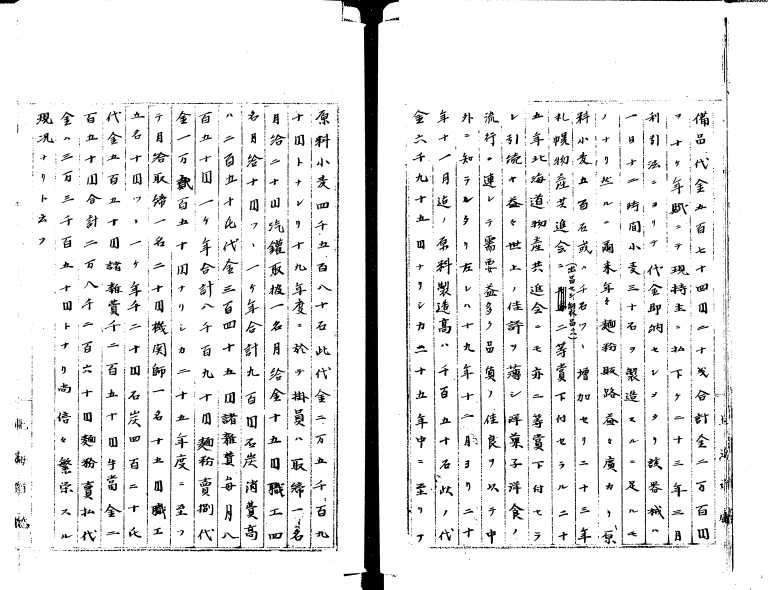 備品代金五百七十四円二十戔合計金二万百円
ヲ十ケ年賦ニテ現持主ニ払下ケ二十三年三月
利引法ニヨリテ代金即納セシメタリ該器械ハ
一日十二時間小麦三十石ヲ製造スルニ足ルモ
ノナリ然ルニ爾来年々麺粉販路益々廣カリ原
料小麦五百石或ハ千石ツヽ増加セリ二十三年
札幌物産共進会ニ(出品セシ麺粉品ハ)二等賞下付セラル二十
五年北海道物産共進会ニモ亦二等賞下付セラ
レ引続キ益々世上ノ佳評ヲ博シ洋菓子洋食ノ
流行ニ連レテ需要益多ク品質ノ佳良ヲ以テ中
外ニ知ラルヽ左レハ十九年十二月ヨリ二十
年十一月迠ノ原料製造高ハ千百五十石此ノ代
金六千九十五円ナリシカ二十五年中ニ至リテ
原料小麦四千五百八十石此代金二万五千百九
十円トナレリ十九年度ニ於テ掛員ハ取締一名
月給二十円汽鑵取扱一名月給金十五円職工四
名月給十円ツヽ一ケ年合計九百円石炭消費高
ハ二百五十屯代金三百四十五円諸雑費毎月八
百五十円一ケ年合計八千百九十円麺粉賣捌代
金一万貳百五十円ナリシカ二十五年度ニ至リ
テ月給取締一名二十円機関師一名十五円職工
五名十円ツヽ一ケ年千二十円石炭四百二十屯
代金五百五十円諸雑費千二百五十円手當金二
百五十円合計二万八千二百六十円麺粉賣払代
金ハ三万三千百五十円トナリ尚倍々繁栄スル
現況ナリト云フ